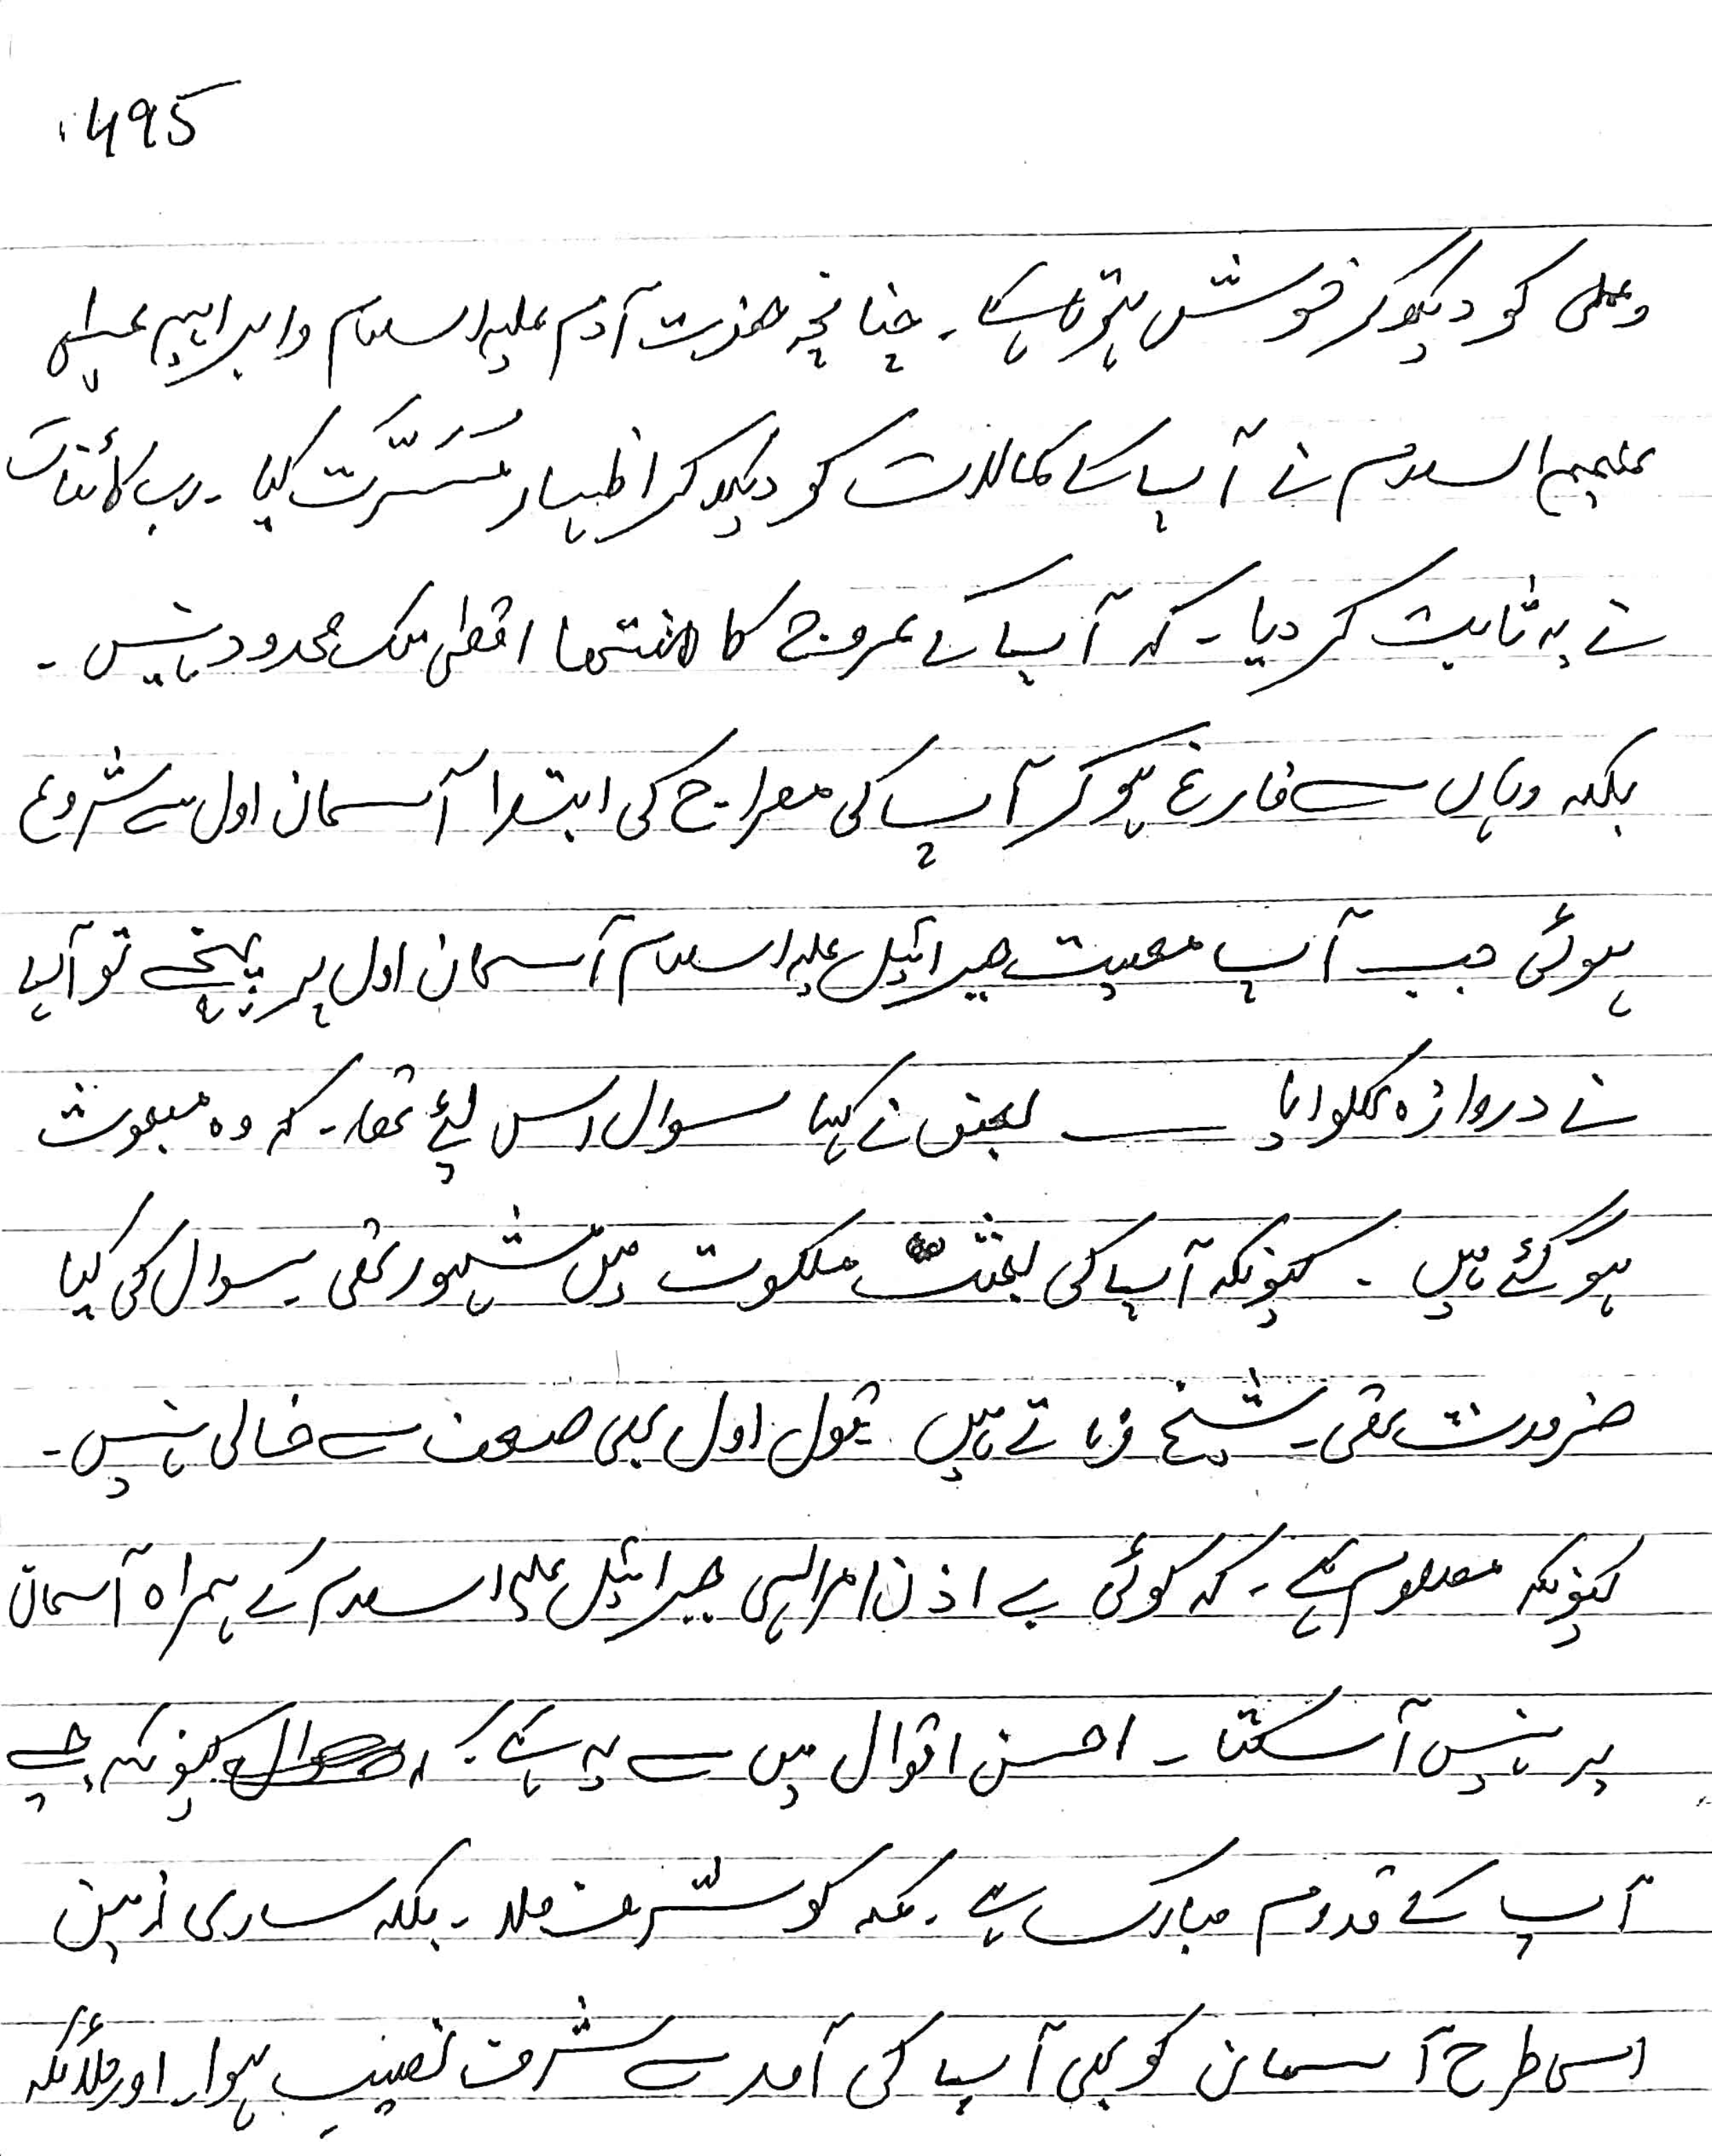 495
وعلی کو دیکھ کر خوش ہوتا ہے۔ چنانچہ حضرت آدم علیہ السلام و ابراہیم
علیہم السلام نے آپ کے کمالات کو دیکھ کر اظہار مَسَرَّت کیا۔ رب کائنات
نے یہ ثابت کر دیا۔ کہ آپ کے عروج کا منتہا اقصٰی تک محدود نہیں۔
بلکہ وہاں سے فارغ ہو کر آپ کی معراج کی ابتدا آسمان اول سے شروع
ہوئی جب آپ معیت جبرائیل علیہ السلام آسمان اول پر پہنچے تو آپ
نے دروازہ کھلوایا ـــــ بعض نے کہا سوال اس لئے تھا۔ کہ وہ مبعوث
ہو گئے ہیں۔ کیونکہ آپ کی بعثت ملکوت میں مشہور تھی سوال کی کیا
ضرورت تھی۔ شیخ فرماتے ہیں قول اول بھی ضعف سے خالی نہیں۔
کیونکہ معلوم ہے۔ کہ کوئی بے اذن امر الہی جبرائیل علیہ السلام کے ہمراہ آسمان
پر نہیں آ سکتا۔ احسن اقوال میں سے یہ ہے۔ کیونکہ جیسے
آپ کے قدوم مبارک سے۔ مکہ کو شرف ملا۔ بلکہ ساری زمین
اسی طرح آسمان کو بھی آپ کی آمد سے شرف نصیب ہوا۔ اور ملائکہ